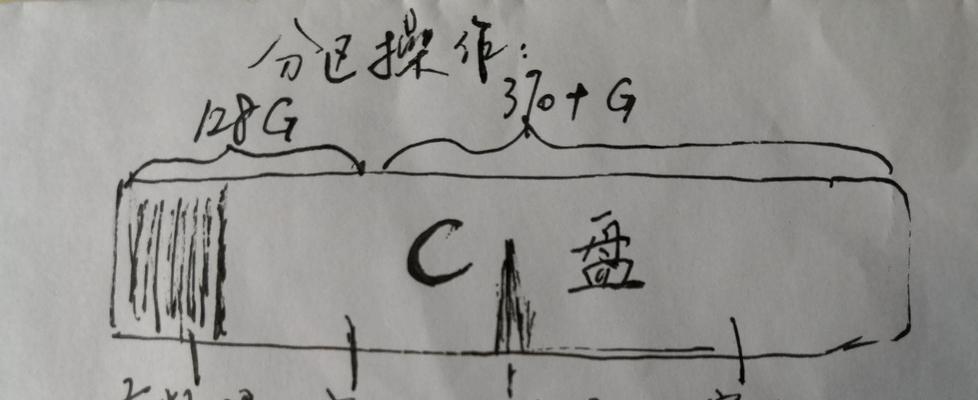 分区操作:
128G
370+G
C盘